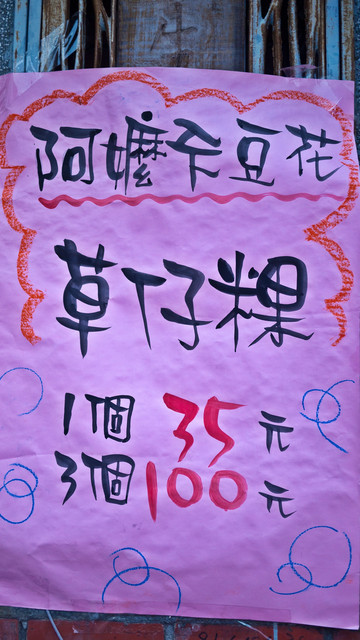 阿嬤ㄟ豆花
草仔粿
1個 35元
3個100元